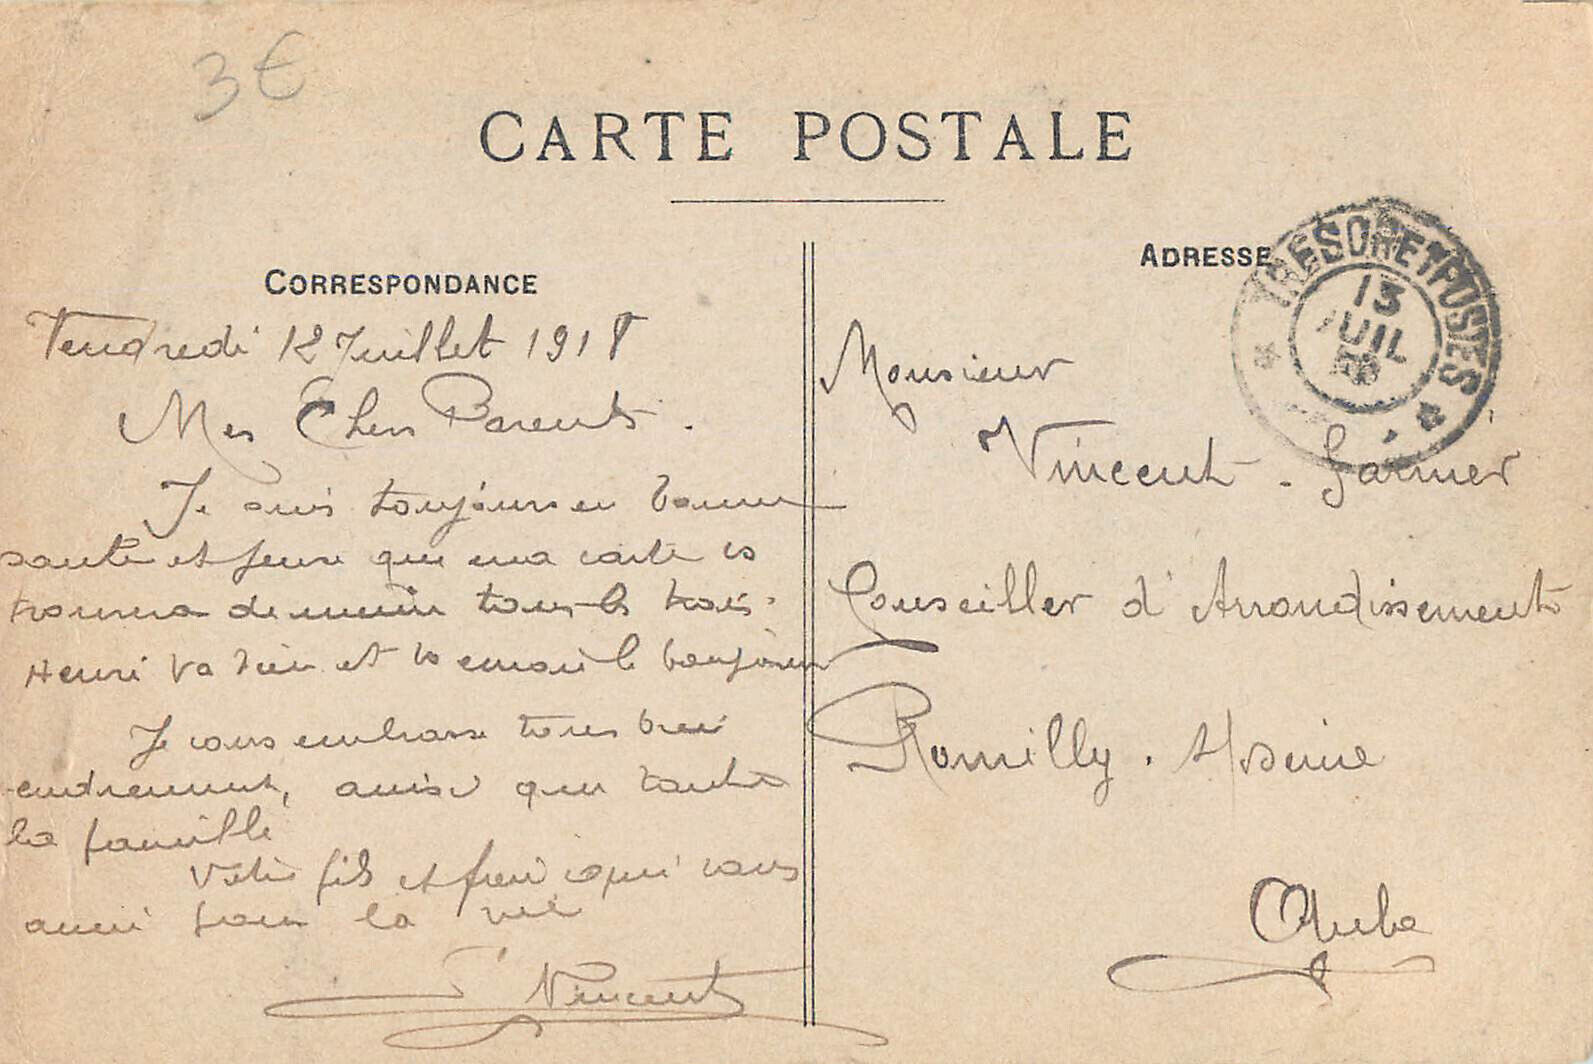 3€
CARTE POSTALE
CORRESPONDANCE
Vendredi 12 Juillet 1918
Mes Chers Parents.
Je suis toujours en bonne
santé et pense que ma carte vs
trouvera demain tous les trois.
Henri va bien et vs envoie le bonjour
Je vous embrasse tous bien
tendrement, ainsi que toute
la famille
Votre fils et frère qui vous
aime pour la vie
Vincent
ADRESSE
TRESOR ET POSTES
13
JUIL
Monsieur
Vincent - Garnier
Conseiller d'Arrondissement
Romilly. s/Seine
Aube